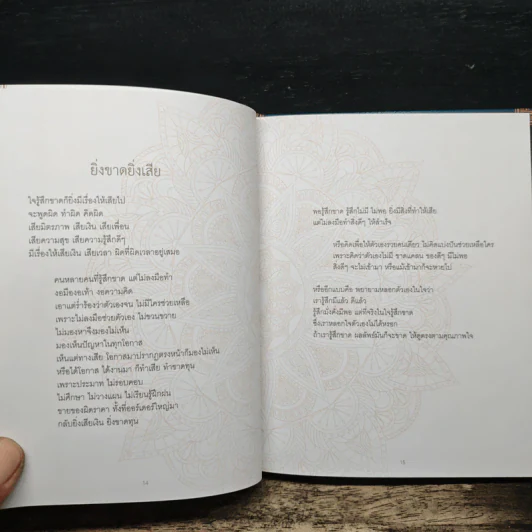 ยิ่งขาดยิ่งเสีย
ใจรู้สึกขาดก็ยิ่งมีเรื่องให้เสียไป
จะพูดผิด ทำผิด คิดผิด
เสียมิตรภาพ เสียเงิน เสียเพื่อน
เสียความสุข เสียความรู้สึกดีๆ
มีเรื่องให้เสียเงิน เสียเวลา ผิดที่ผิดเวลาอยู่เสมอ
คนหลายคนที่รู้สึกขาด แต่ไม่ลงมือทำ
งอมืองอเท้า งอความคิด
เอาแต่ร่ำร้องว่าตัวเองจน ไม่มีใครช่วยเหลือ
เพราะไม่ลงมือช่วยตัวเอง ไม่ขวนขวาย
ไม่มองหาจึงมองไม่เห็น
มองเห็นปัญหาในทุกโอกาส
เห็นแต่ทางเสีย โอกาสมาปรากฏตรงหน้าก็มองไม่เห็น
หรือได้โอกาส ได้งานมา ก็ทำเสีย ทำขาดทุน
เพราะประมาท ไม่รอบคอบ
ไม่ศึกษา ไม่วางแผน ไม่เรียนรู้ฝึกฝน
ขายของผิดราคา ทั้งที่ออร์เดอร์ใหญ่มา
กลับยิ่งเสียเงิน ยิ่งขาดทุน
14
พอรู้สึกขาด รู้สึกไม่มี ไม่พอ ยิ่งมีสิ่งที่ทำให้เสีย
แต่ไม่ลงมือทำสิ่งดีๆ ให้สำเร็จ
หรือคิดเพื่อให้ตัวเองรวยคนเดียว ไม่คิดแบ่งปันช่วยเหลือใคร
เพราะคิดว่าตัวเองไม่มี ขาดแคลน ของดีๆ มีไม่พอ
สิ่งดีๆ จะไม่เข้ามา หรือแม้เข้ามาก็จะหายไป
หรืออีกแบบคือ พยายามหลอกตัวเองในใจว่า
เรารู้สึกมีแล้ว ดีแล้ว
รู้สึกมั่งคั่งมีพอ แต่ที่จริงในใจรู้สึกขาด
ซึ่งเราหลอกใจตัวเองไม่ได้หรอก
ถ้าเรารู้สึกขาด ผลลัพธ์มันก็จะขาด ให้ดูตรงตามคุณภาพใจ
15